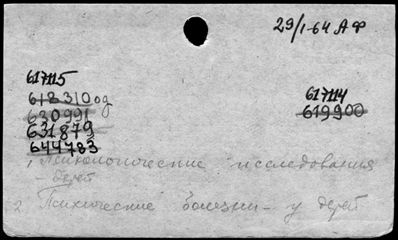 29/1-64 А Ф
617115
618310 од
630991
631879
644783
617114
619900
1. Психологические исследования
детей
2. Психические болезни – у детей